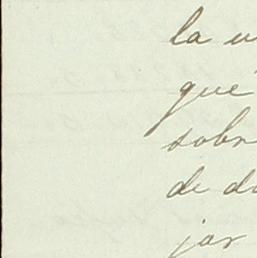 la u
que
sobr
de di
jar